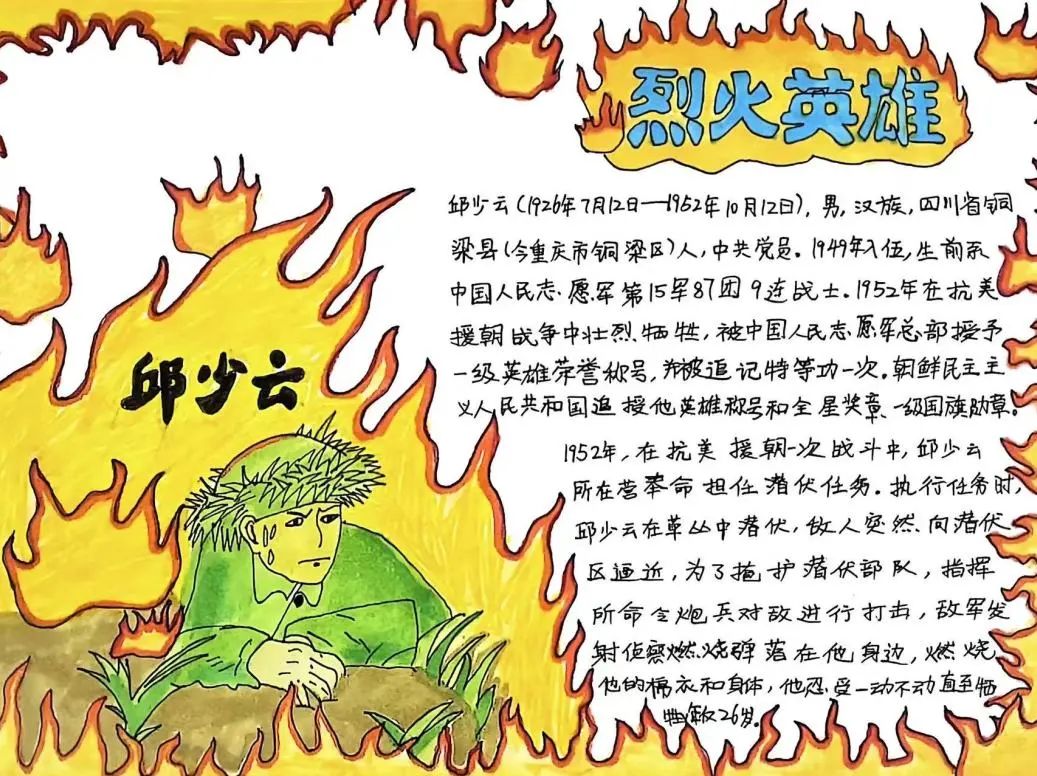 烈火英雄
邱少云(1926年7月12日—1952年10月12日),男,汉族,四川省铜
梁县(今重庆市铜梁区)人,中共党员。1949年入伍,生前系
中国人民志愿军第15军87团9连战士.1952年在抗美
援朝战争中壮烈牺牲,被中国人民志愿军总部授予
一级英雄荣誉称号,并被追记特等功一次。朝鲜民主主
义人民共和国追授他英雄称号和全星奖章、一级国旗勋章。
邱少云
1952年,在抗美援朝一次战斗中,邱少云
所在营奉命担任潜伏任务。执行任务时,
邱少云在草丛中潜伏,敌人突然向潜伏
区逼近,为了掩护潜伏部队,指挥
所命令炮兵对敌进行打击,敌军发
射侦察燃烧弹落在他身边,燃烧
他的棉衣和身体,他忍受一动不动直至牺
牲年仅26岁。